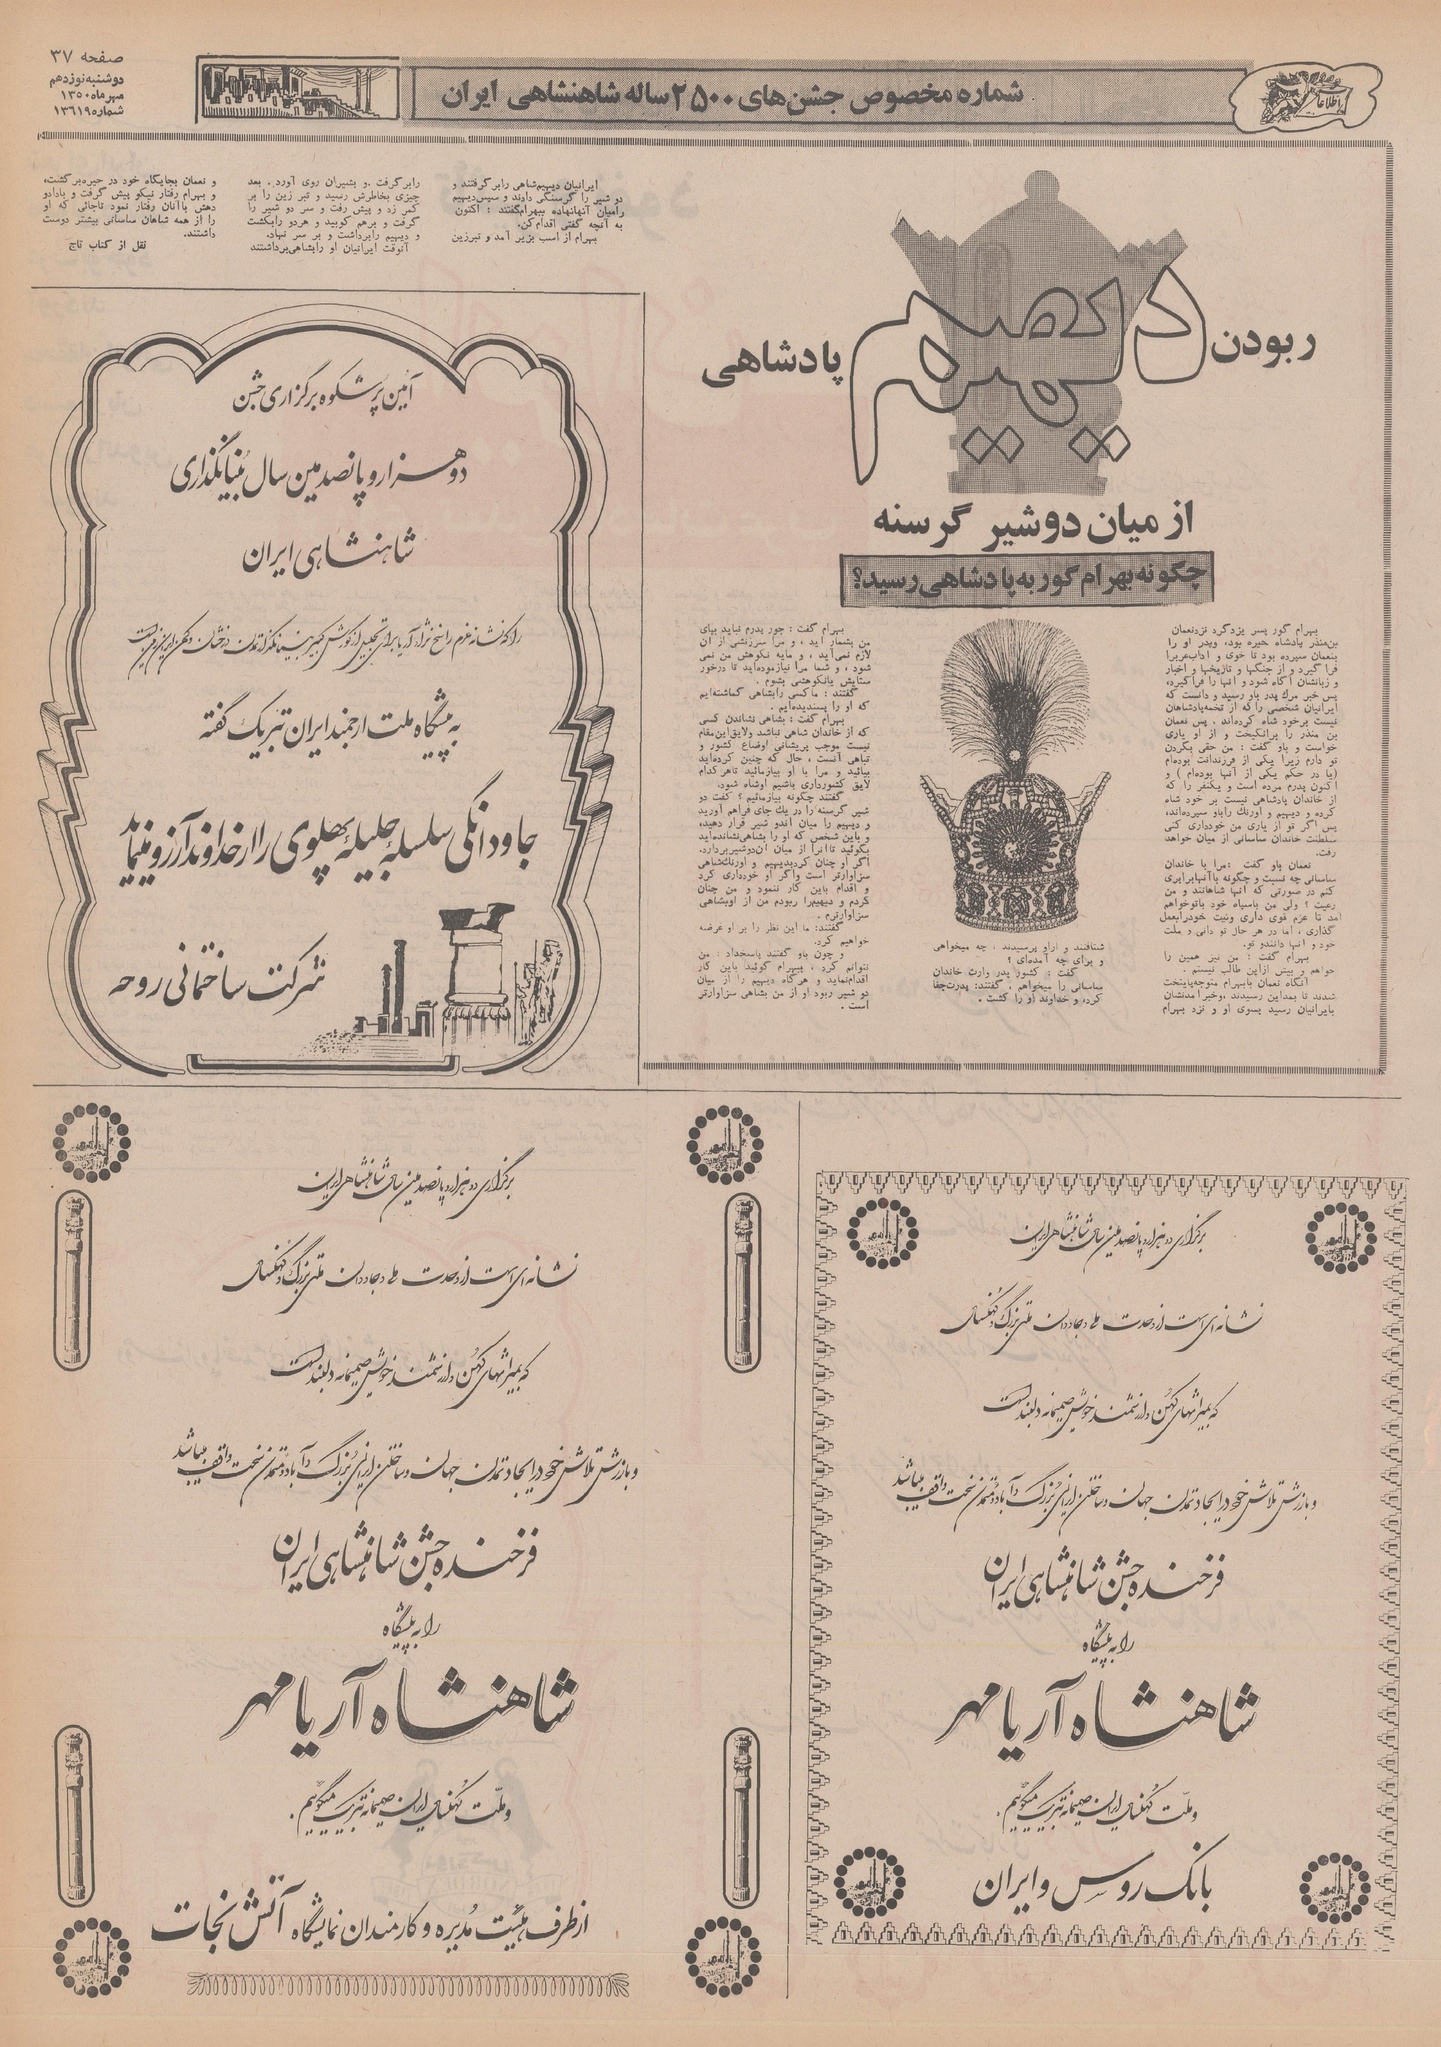 صفحه ۳۷
دوشنبه نوزدهم
مهر ماه ۱۳۵۰
شماره ۱۳۶۱۹
شماره مخصوص جشن های ۲۵۰۰ ساله شاهنشاهی ایران
اطلاعات
ربودن
دیهیم
پادشاهی
از میان دو شیر گرسنه
چگونه بهرام گور به پادشاهی رسید؟
بهرام گور پسر یزدگرد نزد نعمان
بن منذر پادشاه حیره بود، و پدر او را
بنعمان سپرده بود تا خوی و آداب عرب را
فرا گیرد و از جنگها و تاریخها و اخبار
و زبانشان آگاه شود و آنها را فرا گیرد،
پس خبر مرگ پدر باو رسید و دانست که
ایرانیان شخصی را که از تخمه پادشاهان
نیست بر خود شاه کرده‌اند . پس نعمان
بن منذر را برانگیخت و از او یاری
خواست و باو گفت : من حقی بگردن
تو دارم زیرا یکی از فرزندانت بوده‌ام
(یا در حکم یکی از آنها بوده‌ام ) و
اکنون پدرم مرده است و یکنفر را که
از خاندان پادشاهی نیست بر خود شاه
کرده و دیهیم و اورنگ را باو سپرده‌اند،
پس اگر تو از یاری من خودداری کنی
سلطنت خاندان ساسانی از میان خواهد
رفت.
نعمان باو گفت :مرا با خاندان
ساسانی چه نسبت و چگونه با آنها برابری
کنم در صورتی که آنها شاهانند و من
رعیت ؟ ولی من با سپاه خود با تو خواهم
آمد تا عزم قوی داری ونیت خود را بعمل
گذاری ، اما در هر حال تو دانی و ملت
خود و آنها دانند و تو.
بهرام گفت : من نیز همین را
خواهم و بیش از این طالب نیستم .
آنگاه نعمان با بهرام متوجه پایتخت
شدند تا بمداین رسیدند ،وخبر آمدنشان
بایرانیان رسید بسوی او و نزد بهرام
شتافتند و از او پرسیدند ، چه میخواهی
و برای چه آمده‌ای ؟
گفت : کشور پدر وارث خاندان
ساسانی را میخواهم . گفتند: پدرت جفا
کرد، و خداوند او را کشت .
بهرام گفت : جور پدرم نباید بپای
من بشمار آید ، و مرا سرزنشی از آن
لازم نمی‌آید ، و مایه نکوهش من نمی
شود ، و شما مرا نیازموده‌اید تا درخور
ستایش یا نکوهشی بشوم .
گفتند : ما کسی را بشاهی گماشته‌ایم
که او را پسندیده‌ایم .
بهرام گفت : بشاهی نشاندن کسی
که از خاندان شاهی نباشد ولایق این مقام
نیست موجب پریشانی اوضاع کشور و
تباهی آنست ، حال که چنین کرده‌اید
بیائید و مرا با او بیازمائید تا هر کدام
لایق کشورداری باشیم او شاه شود.
گفتند چگونه بیازمائیم ؟ گفت دو
شیر گرسنه را در یک جای فراهم آورید
و دیهیم را میان آندو شیر قرار دهید،
و باین شخص که او را بشاهی نشانده‌اید
بگوئید تا آنرا از میان آن دو شیر بردارد.
اگر او چنان کرد بدیهیم و اورنگ شاهی
سزاوارتر است واگر او خودداری کرد
و اقدام باین کار ننمود و من چنان
کردم و دیهیم را ربودم من از او بشاهی
سزاوارترم .
گفتند: ما این نظر را بر او عرضه
خواهیم کرد.
و چون باو گفتند پاسخداد : من
نتوانم کرد ، ببهرام گوئید باین کار
اقدام نماید و هرگاه دیهیم را از میان
دو شیر ربود او از من بشاهی سزاوارتر
است .
ایرانیان دیهیم شاهی را بر گرفتند و
دو شیر را گرسنگی دادند و سپس دیهیم
را میان آنها نهاده ببهرام گفتند : اکنون
به آنچه گفتی اقدام کن.
بهرام از اسب بزیر آمد و تبرزین
را بر گرفت .و بشیران روی آورد . بعد
چیزی بخاطرش رسید و تبر زین را بر
کمر زد و پیش رفت و سر دو شیر را
گرفت و برهم کوبید و هر دو را بکشت
و دیهیم را برداشت و بر سر نهاد.
آنوقت ایرانیان او را بشاهی برداشتند
و نعمان بجایگاه خود در حیره برگشت،
و بهرام رفتار نیکو پیش گرفت و با داد و
دهش با آنان رفتار نمود تا جائی که او
را از همه شاهان ساسانی بیشتر دوست
داشتند.
نقل از کتاب تاج
آئین پرشکوه برگزاری جشن
دو هزار و پانصدمین سال بنیانگذاری
شاهنشاهی ایران
را که نشانه عزم راسخ نژاد آریا برای تجلیل از کورش کبیر بنیانگذار تمدن درخشان و کهن ایران زمین است
به پیشگاه ملت ارجمند ایران تبریک گفته
جاودانگی سلسله جلیله پهلوی را از خداوند آرزو مینماید
شرکت ساختمانی روحه
برگزاری دو هزار و پانصدمین سال شاهنشاهی ایران
نشانه‌ای است از وحدت ملی و جاودان ملتی بزرگ و کهنسال
که بمیراثهای کهن و ارزشمند خویش صمیمانه دلبند است
و بارزش تلاش خود در ایجاد تمدن جهان و ساختن ایرانی بزرگ و آباد و متمدن سخت واقف میباشد
فرخنده جشن شاهنشاهی ایران
را به پیشگاه
شاهنشاه آریامهر
و ملت کهنسال ایران صمیمانه تبریک میگوییم.
بانک روس و ایران
برگزاری دو هزار و پانصدمین سال شاهنشاهی ایران
نشانه‌ای است از وحدت ملی و جاودان ملتی بزرگ و کهنسال
که بمیراثهای کهن و ارزشمند خویش صمیمانه دلبند است
و بارزش تلاش خود در ایجاد تمدن جهان و ساختن ایرانی بزرگ و آباد و متمدن سخت واقف میباشد
فرخنده جشن شاهنشاهی ایران
را به پیشگاه
شاهنشاه آریامهر
و ملت کهنسال ایران صمیمانه تبریک میگوییم.
از طرف هیئت مدیره و کارمندان نمایشگاه آتش نجات